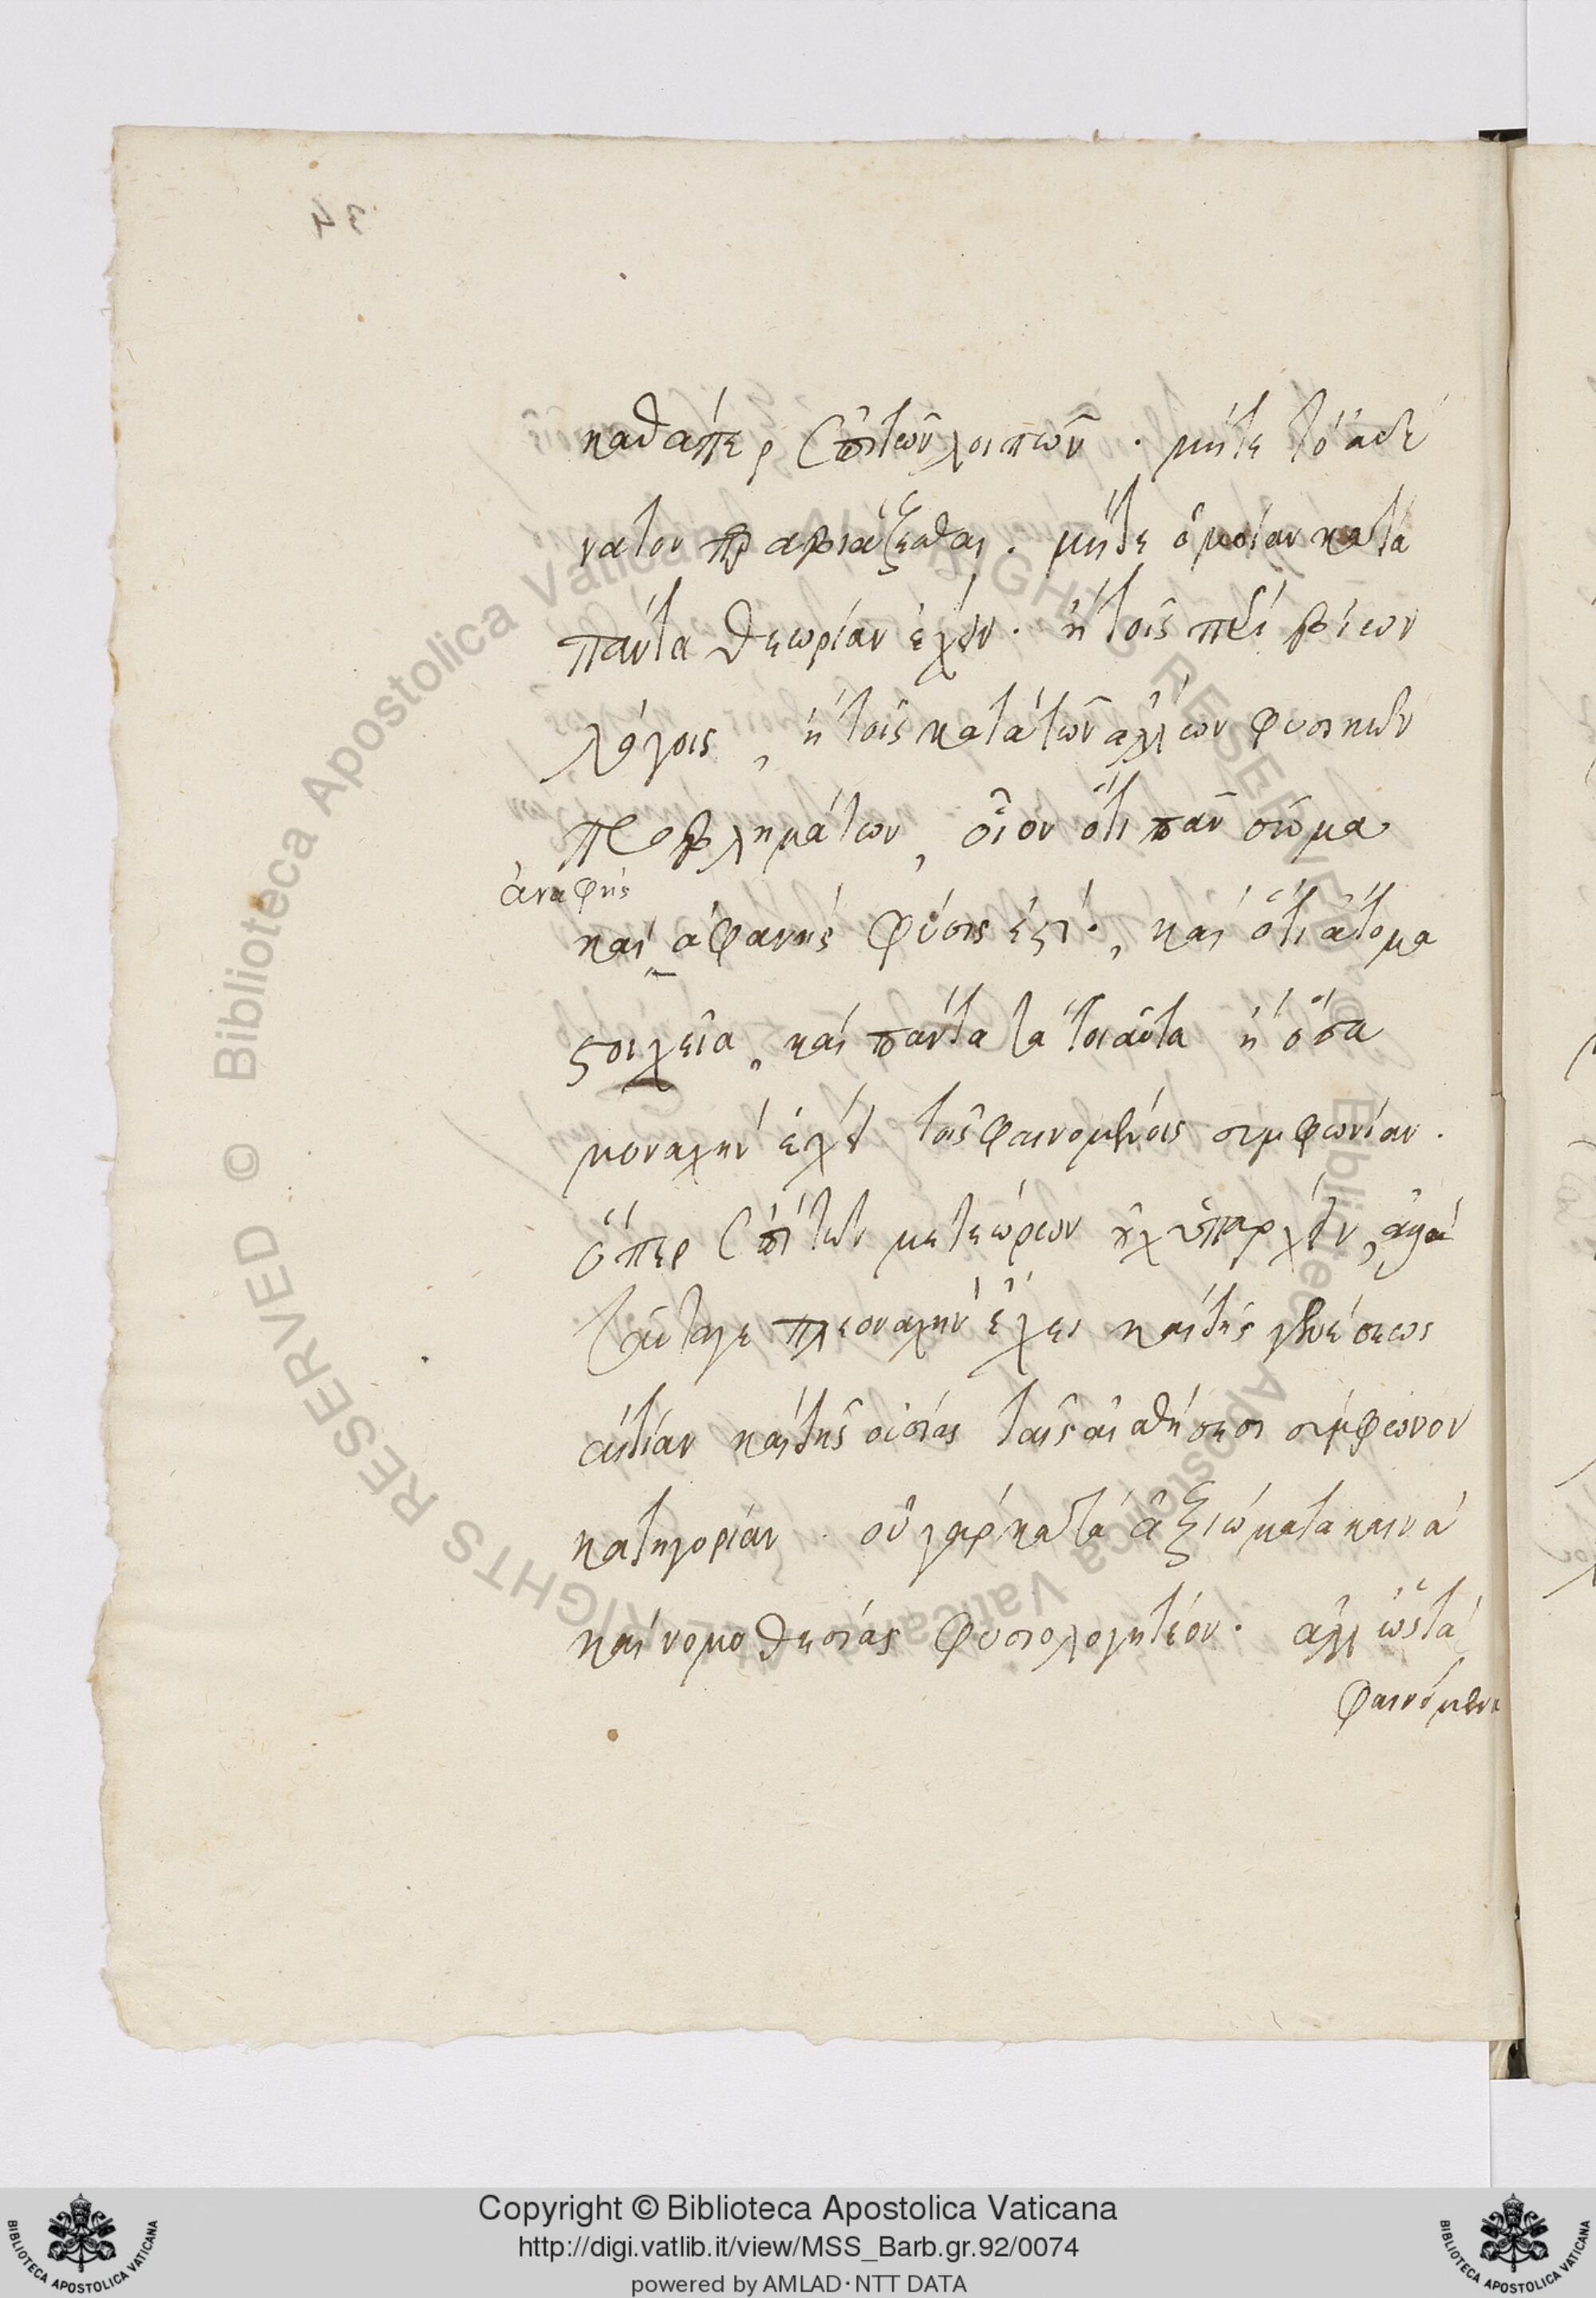 34
καθάπερ ἐπὶ τῶν λοιπῶν · μήτε τὸ ἀδύ
νατον παραβιάζεσθαι · μήτε ὁμοίαν κατὰ
πάντα θεωρίαν ἔχειν · ἢ τοῖς περὶ βίων
λόγοις, ἢ τοῖς κατὰ τῶν ἄλλων φυσικῶν
προβλημάτων, οἷον ὅτι πᾶν σῶμα
ἀναφὴς
καὶ ἀφανὴς φύσις ἐστί ·, καὶ ὅτι ἄτομα
στοιχεῖα, καὶ πάντα τὰ τοιαῦτα ἢ ὅσα
μοναχὴν ἔχει τοῖς φαινομένοις συμφωνίαν ·
ὅπερ ἐπὶ τῶν μετεώρων οὐχ ὑπάρχειν, ἀλλὰ
ταῦτα γε πλεοναχὴν ἔχει καὶ τῆς γενέσεως
αἰτίαν καὶ τῆς οὐσίας ταῖς αἰσθήσεσι σύμφωνον
κατηγορίαν · οὐ γὰρ κατὰ ἀξιώματα κενὰ
καὶ νομοθεσίας φυσιολογητέον · ἀλλ ὡς τὰ
φαινόμενα
Copyright © Biblioteca Apostolica Vaticana
http://digi.vatlib.it/view/MSS_Barb.gr.92/0074
powered by AMLAD·NTT DATA